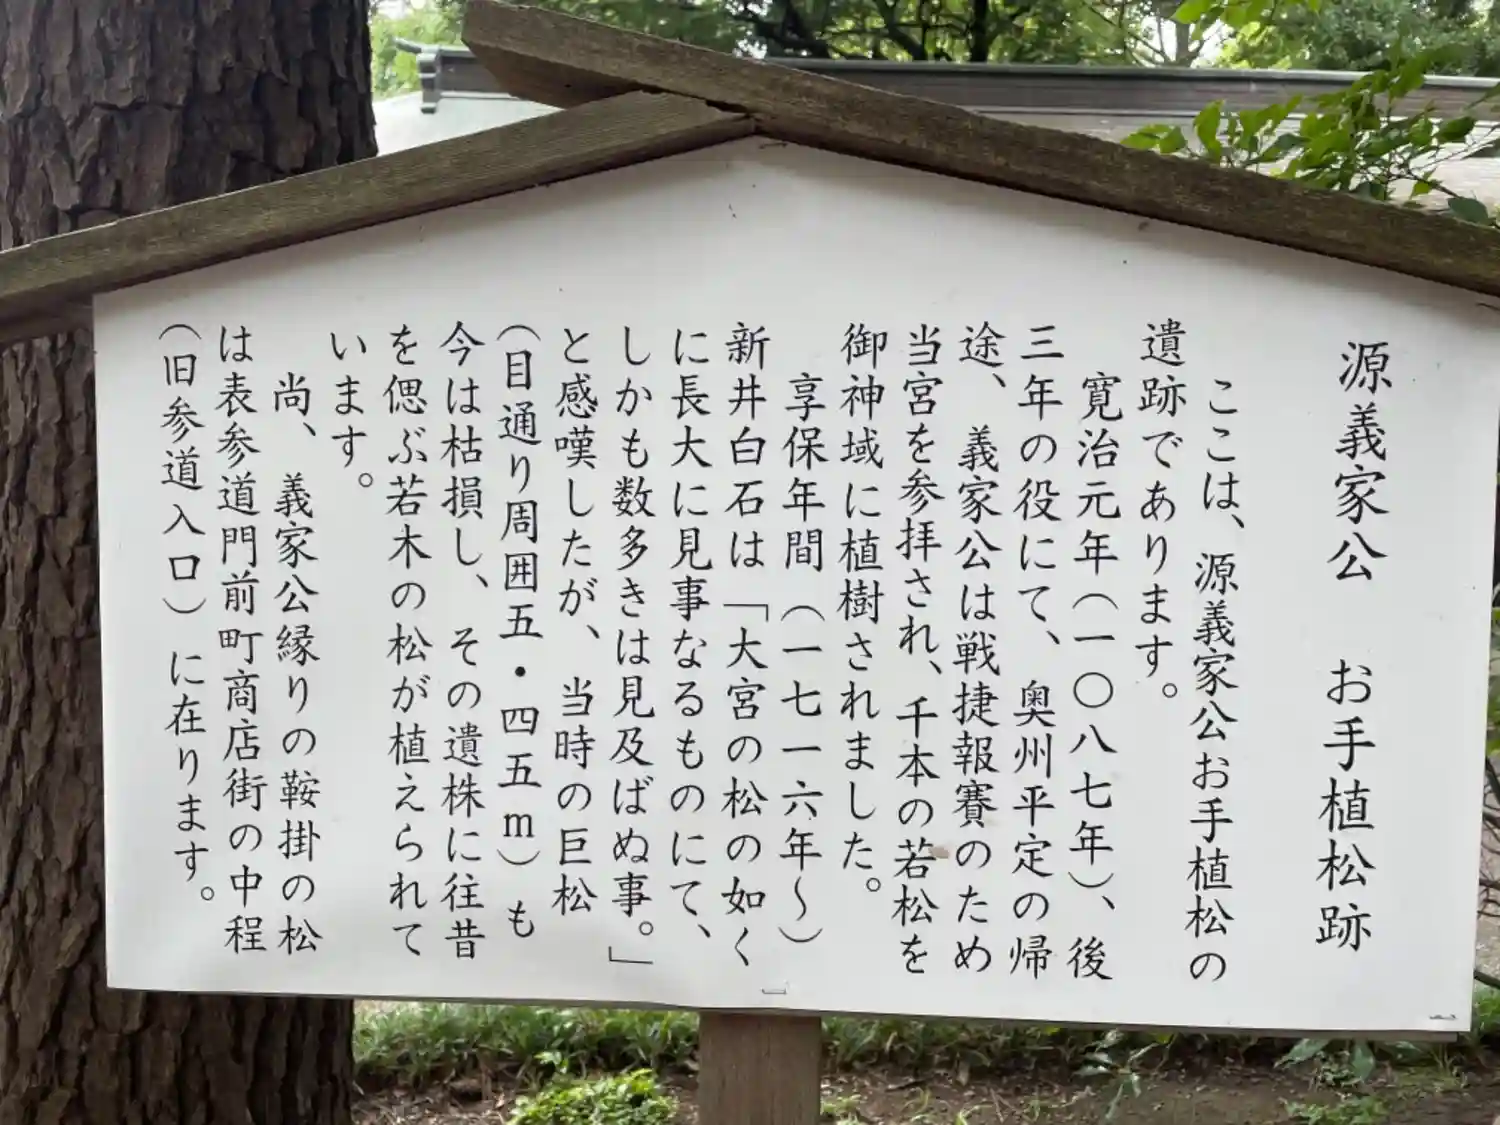 源義家公　お手植松跡
ここは、源義家公お手植松の
遺跡であります。
寛治元年（一〇八七年）、後
三年の役にて、奥州平定の帰
途、義家公は戦捷報賽のため
当宮を参拝され、千本の若松を
御神域に植樹されました。
享保年間（一七一六年～）
新井白石は「大宮の松の如く
に長大に見事なるものにて、
しかも数多きは見及ばぬ事。」
と感嘆したが、当時の巨松
（目通り周囲五・四五ｍ）も
今は枯損し、その遺株に往昔
を偲ぶ若木の松が植えられて
います。
尚、義家公縁りの鞍掛の松
は表参道門前町商店街の中程
（旧参道入口）に在ります。